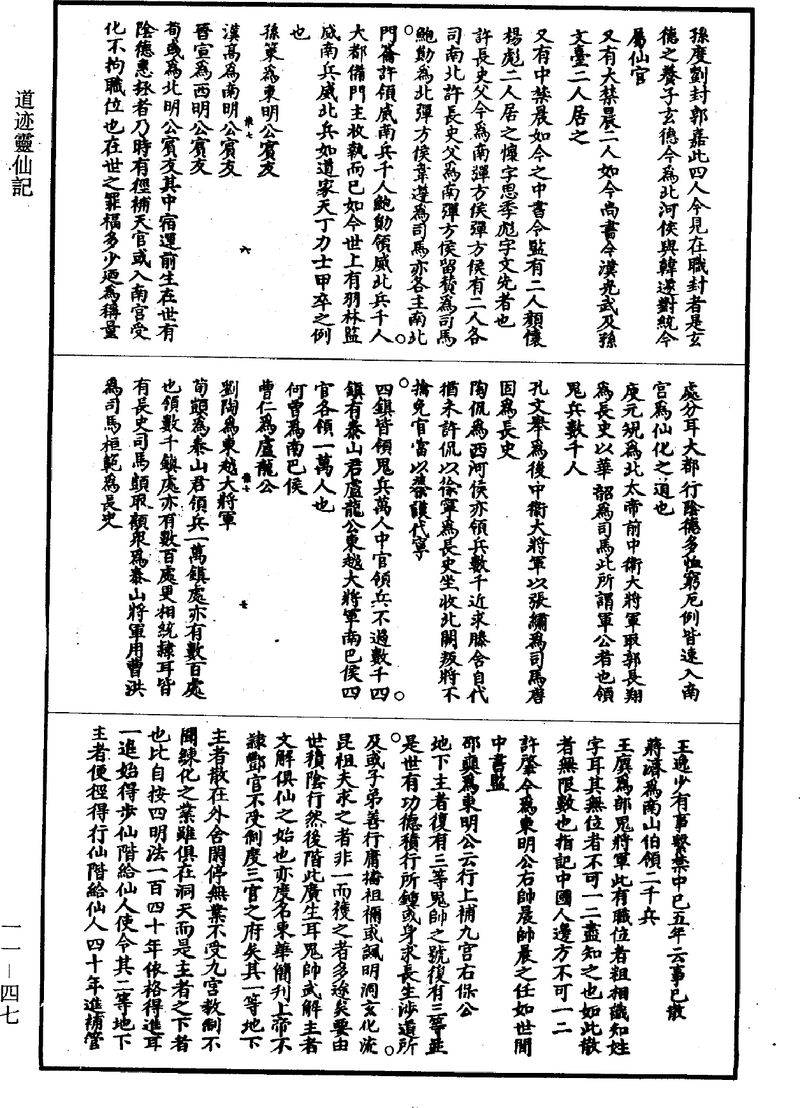 道迹靈仙記
孫度劉封郭嘉此四人今見在職封者是玄
德之養子玄德今為北河侯與韓遂對統今
屬仙官
又有大禁晨二人如今尚書令漢光武及孫
文臺二人居之
又有中禁晨如今之中書令監有二人顏懷
楊彪二人居之懷字思季彪字文先者也
許長史父今為南彈方侯彈方侯有二人各
司南北許長史父為南彈方侯留贊為司馬
鮑勛為北彈方侯韋遵為司馬亦各主南北
門籥許領威南兵千人鮑勛領威北兵千人
大都備門主收執而已如今世上有羽林監
威南兵威北兵如道家天丁力士甲卒之例
也
孫策為東明公賓友
漢高為南明公賓友
六
晉宣為西明公賓友
荀彧為北明公賓友其中宿運前生在世有
陰德惠拯者乃時有徑補天官或入南宮受
化不拘職位也在世之罪福多少迺為稱量
處分耳大都行陰德多恤窮厄例皆速入南
宮為仙化之道也
庾元規為北太帝前中衛大將軍取郭長翔
為長史以華韶為司馬此所謂軍公者也領
鬼兵數千人
孔文舉為後中衛大將軍以張繡為司馬唐
固為長史
陶侃為西河侯亦領兵數千近求滕含自代
猶未許侃以徐寧為長史坐收北闕叛將不
擒免官當以蔡謨代寧
四鎮皆領鬼兵萬人中官領兵不過數千四
鎮有泰山君盧龍公東越大將軍南巴侯四
官各領一萬人也
何曾為南巴侯
曹仁為盧龍公
劉陶為東越大將軍
七
荀顗為泰山君領兵一萬鎮處亦有數百處
也領數千鎮處亦有數百處更相統隸耳皆
有長史司馬顗取顧眾為泰山將軍用曹洪
為司馬桓範為長史
王逸少有事繫禁中已五年云事已散
蔣濟為南山伯領二千兵
王廙為部鬼將軍此有職位者粗相識知姓
字耳其無位者不可一二盡知之也如此散
者無限數也指記中國人邊方不可一二
許肇今為東明公右帥晨帥晨之任如世間
中書監
邵奭為東明公云行上補九宮右保公
地下主者復有三等鬼帥之號復有三等並
是世有功德積行所鍾或身求長生涉道所
及或子弟善行庸播祖禰或諷明洞玄化流
昆祖夫求之者非一而獲之者多途矣要由
世積陰行然後階此廣生耳鬼帥武解主者
文解俱仙之始也亦度名東華簡刊上帝不
隸酆宮不受制度三官之府矣其一等地下
主者散在外舍閑停無業不受九宮教制不
關練化之業雖俱在洞天而是主者之下者
也比自按四明法一百四十年依格得進耳
一進始得步仙階給仙人使令其二等地下
主者便徑得行仙階給仙人四十年進補管
一一—四七